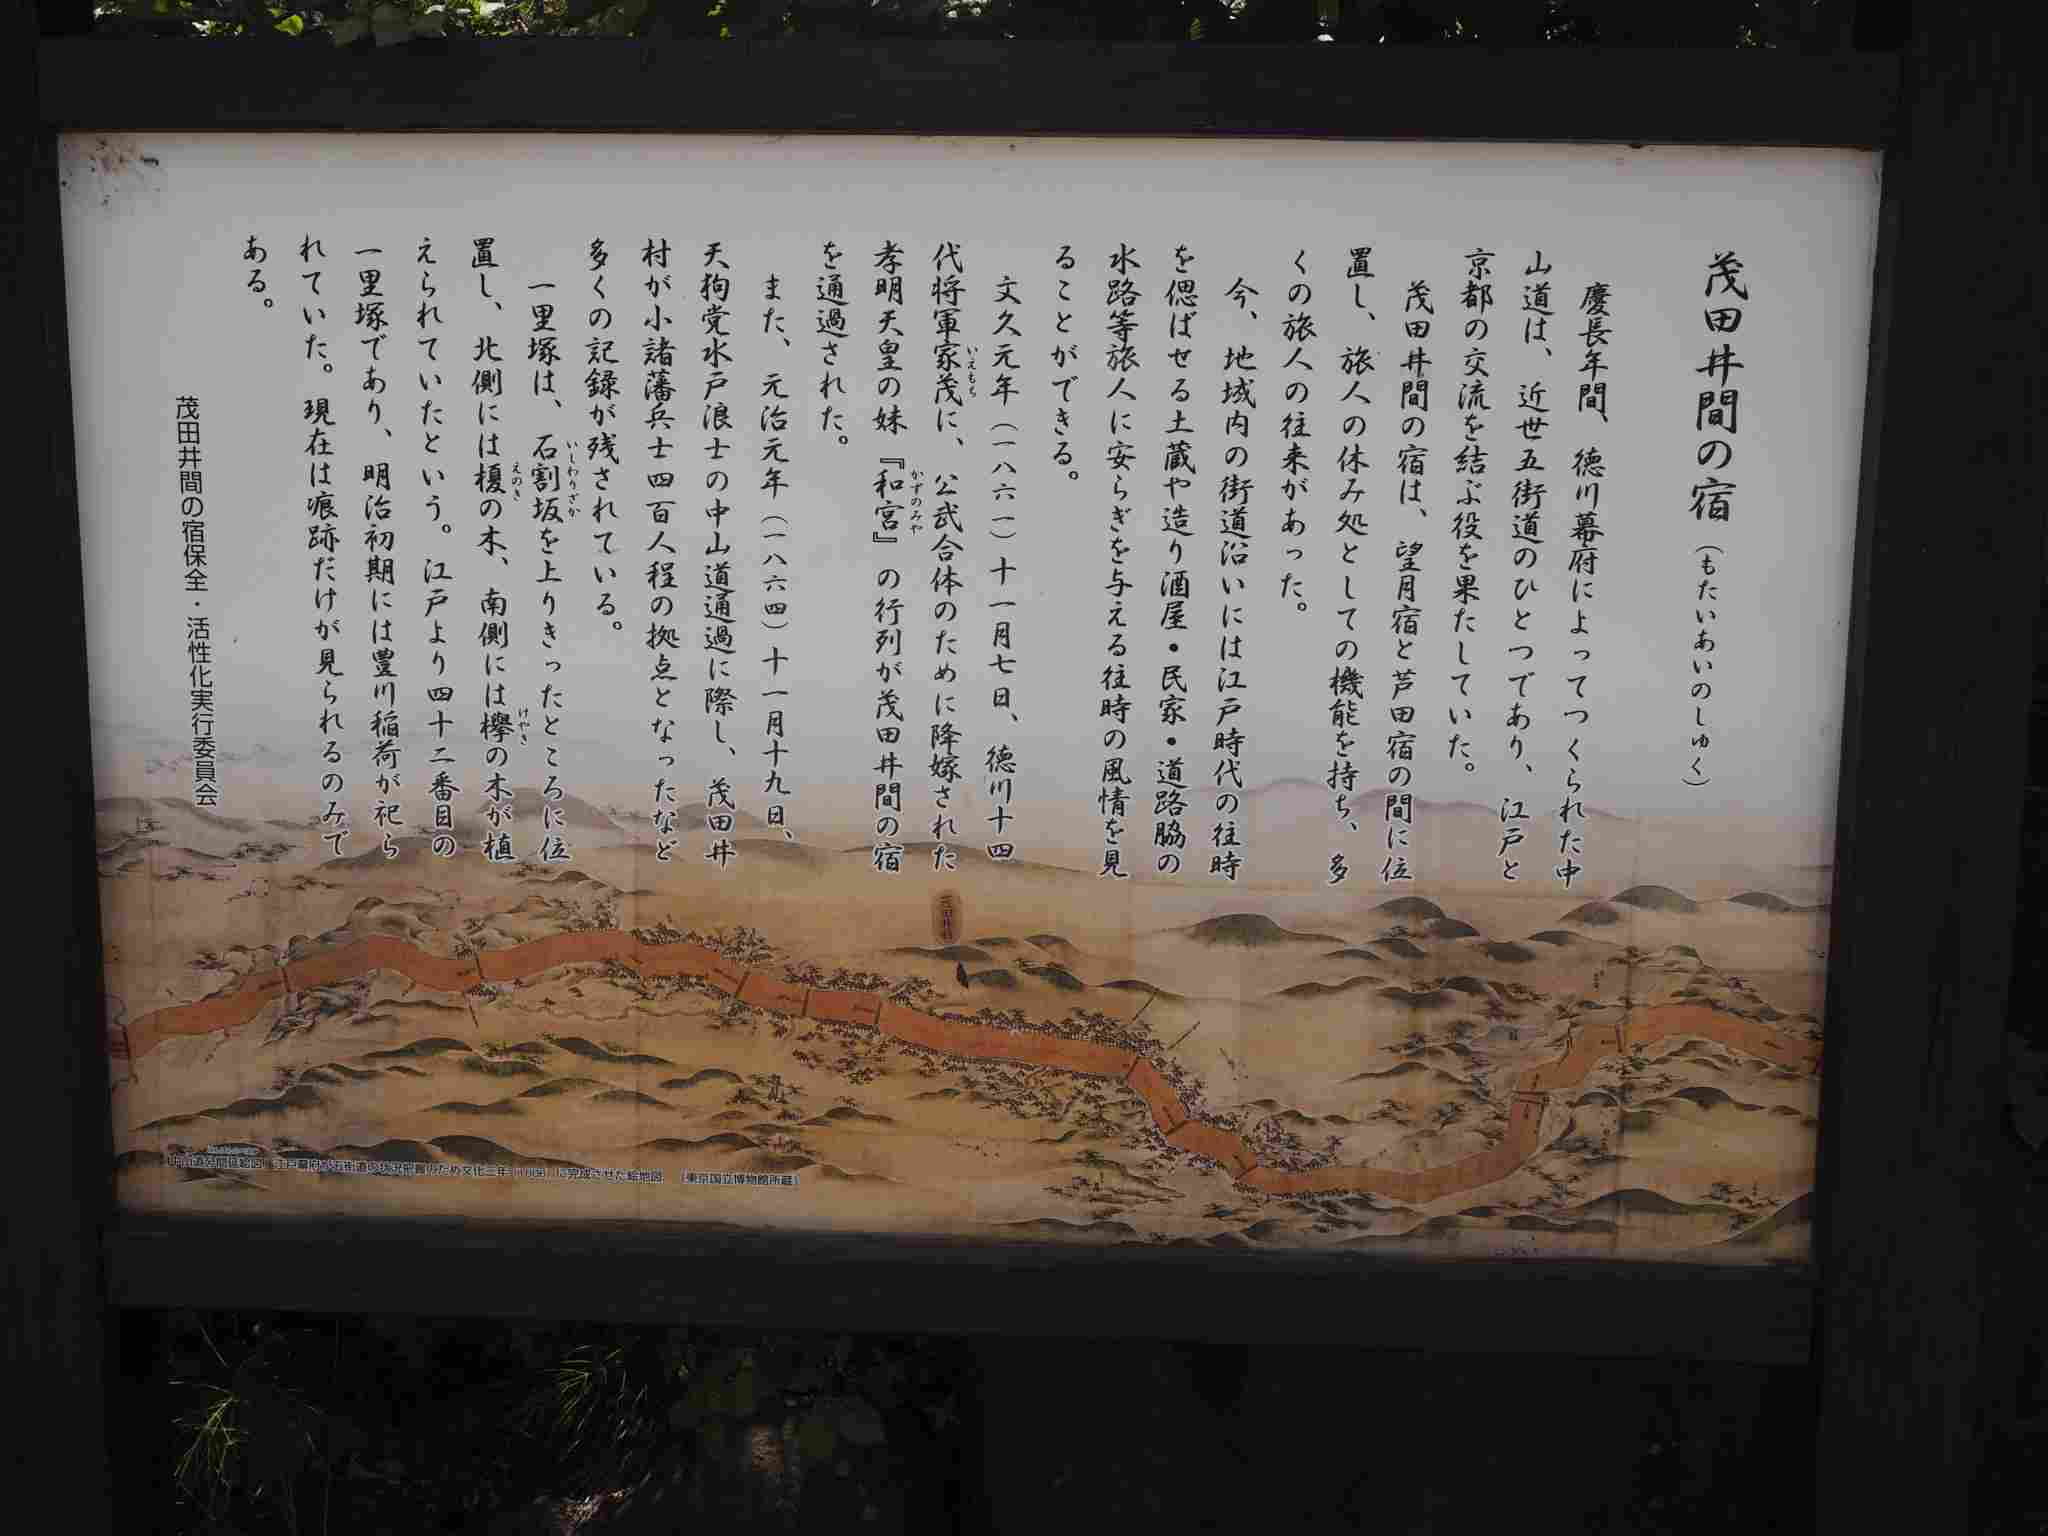 茂田井間の宿（もたいあいのしゅく）
慶長年間、徳川幕府によってつくられた中
山道は、近世五街道のひとつであり、江戸と
京都の交流を結ぶ役を果たしていた。
茂田井間の宿は、望月宿と芦田宿の間に位
置し、旅人の休み処としての機能を持ち、多
くの旅人の往来があった。
今、地域内の街道沿いには江戸時代の往時
を偲ばせる土蔵や造り酒屋・民家・道路脇の
水路等旅人に安らぎを与える往時の風情を見
ることができる。
文久元年（一八六一）十一月七日、徳川十四
代将軍家茂に、公武合体のために降嫁された
いえもち
孝明天皇の妹『和宮』の行列が茂田井間の宿
かずのみや
を通過された。
また、元治元年（一八六四）十一月十九日、
天狗党水戸浪士の中山道通過に際し、茂田井
村が小諸藩兵士四百人程の拠点となったなど
多くの記録が残されている。
一里塚は、石割坂を上りきったところに位
いしわりざか
置し、北側には榎の木、南側には欅の木が植
えのき
けやき
えられていたという。江戸より四十二番目の
一里塚であり、明治初期には豊川稲荷が祀ら
れていた。現在は痕跡だけが見られるのみで
ある。
茂田井間の宿保全・活性化実行委員会
江戸幕府が五街道の状況把握のため文化三年（1806）に完成させた絵地図　（東京国立博物館所蔵）